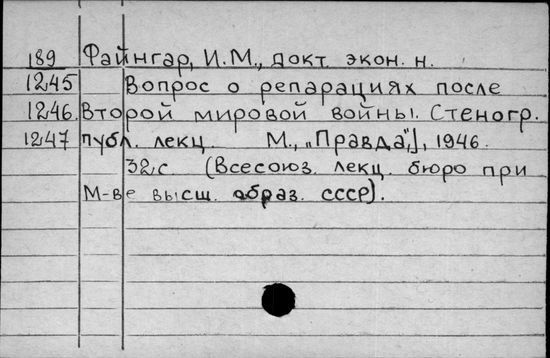 189 Файнгар, И.М., докт. экон. н.
1245 Вопрос о репарациях после
1246. Второй мировой войны. Стеногр.
1247 публ. лекц. М., „Правда“], 1946.
32 с. (Всесоюз. лекц. бюро при
М-ве высш. образ. СССР).